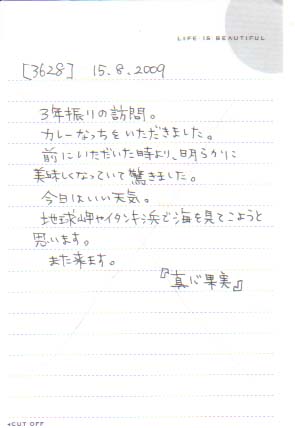 LIFE IS BEAUTIFUL
[3628] 15.8.2009
3年振りの訪問。
カレーなっちをいただきました。
前にいただいた時より、明らかに
美味しくなっていて驚きました。
今日はいい天気。
地球岬やイタンキ浜で海を見てこようと
思います。
また来ます。
『真心果実』
◂CUT OFF